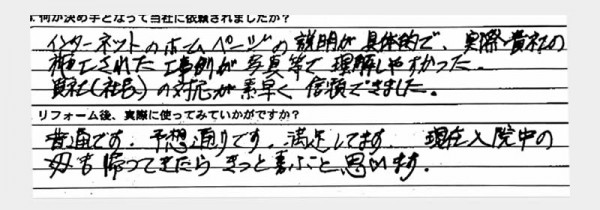 1.何が決め手となって当社に依頼されましたか?
インターネットのホームページの説明が具体的で、実際貴社の
施工された工事例が写真等で理解しやすかった。
貴社(社長)の対応が素早く信頼できました。
リフォーム後、実際に使ってみていかがですか?
普通です。予想通りです。満足してます。 現在入院中の
母も帰ってきたらきっと喜ぶこと思います.